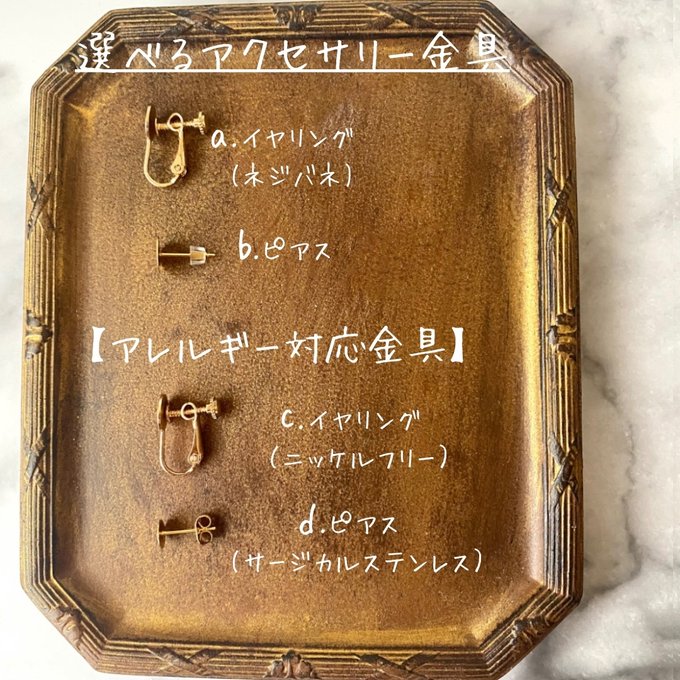 選べるアクセサリー金具
a.イヤリング
(ネジバネ)
b.ピアス
【アレルギー対応金具】
c.イヤリング
(ニッケルフリー)
d.ピアス
(サージカルステンレス)